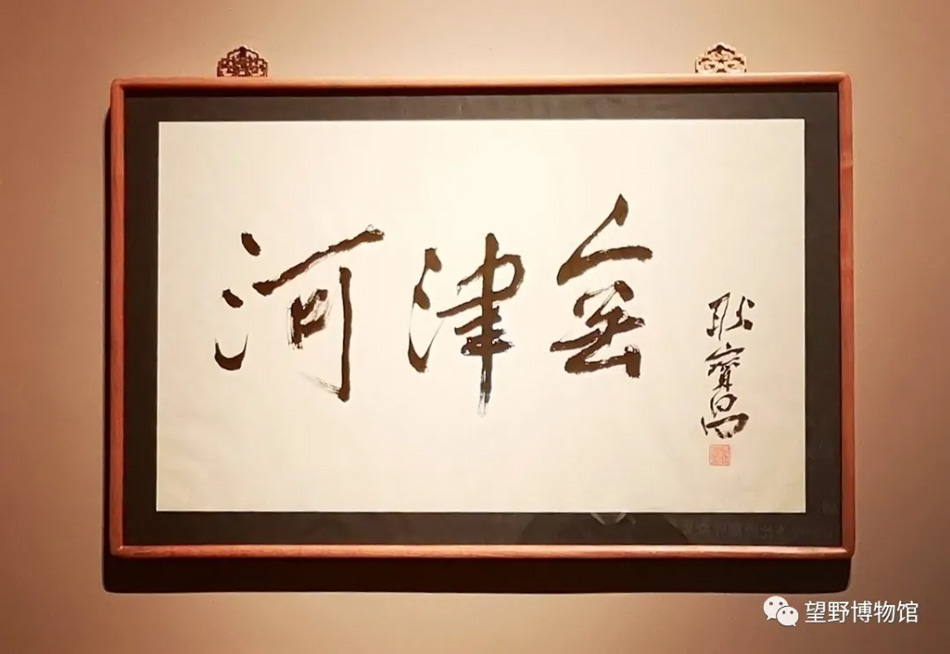 河津窑
耿寳昌
望野博物馆